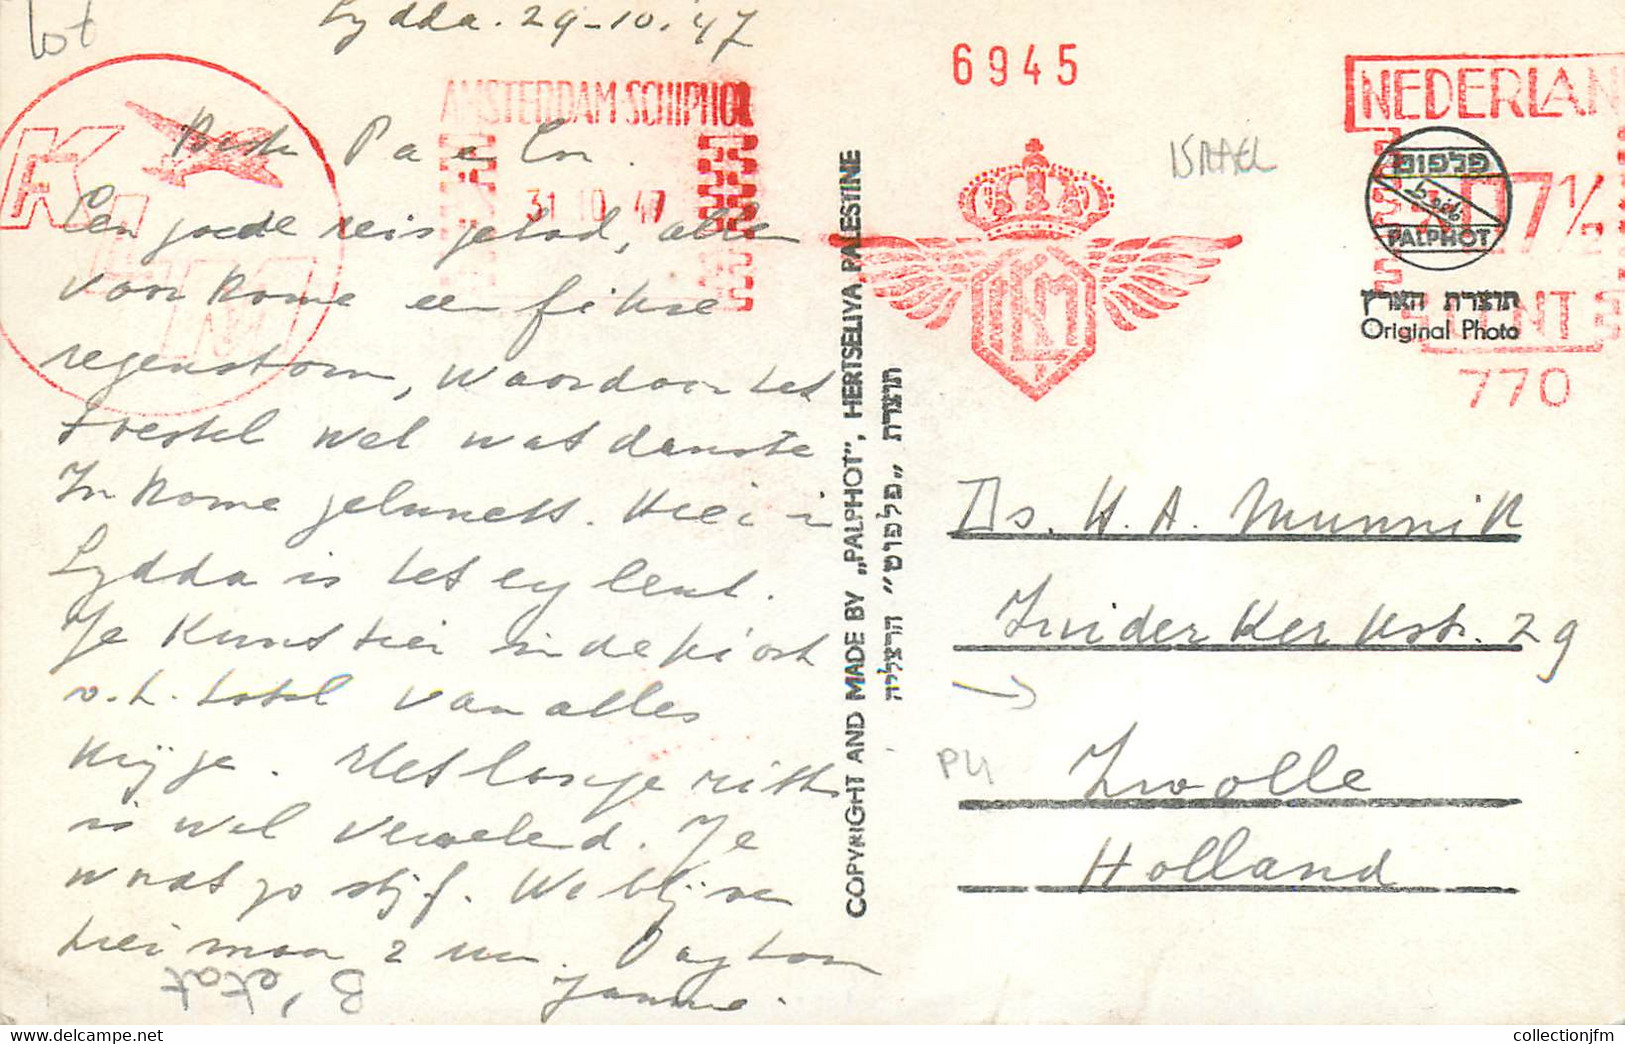 lot
Lydda. 29-10-'47
KLM
AMSTERDAM-SCHIPHOL
31 10 47
6945
KLM
NEDERLAN
07½
CENT
770
ISRAEL
פלפוט
PALPHOT
תוצרת הארץ
Original Photo
Beste Pa en Cor.
Een goede reis gehad, alleen
voor Rome een fikse
regenstorm, waardoor het
toestel wel wat danste
In Rome geluncht. Hier in
Lydda is het erg leuk.
Je kunt hier in de
v. h. hotel van alles
krijgen. Het lange zitten
is wel vervelend. Je
wordt zo stijf. We blijven
hier maar 2 uur. Dag hoor
Janna.
B'etat
COPYRIGHT AND MADE BY „PALPHOT", HERTSELIYA, PALESTINE
תוצרת „פלפוט" הרצליה
Ds. H. A. Munnik
Zuiderkerkstr. 29
Zwolle
P4
Holland
collectionjfm